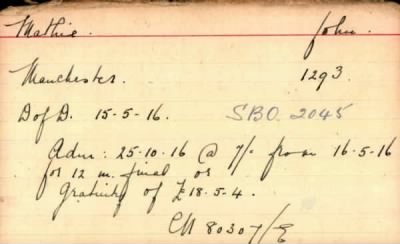 Mathie. John.
Manchester. 1293.
D of D. 15-5-16. SBO. 2045
Adm: 25-10-16 @ 7/- from 16-5-16
for 12 m. final or
Gratuity of £18-5-4.
CM 80307/E